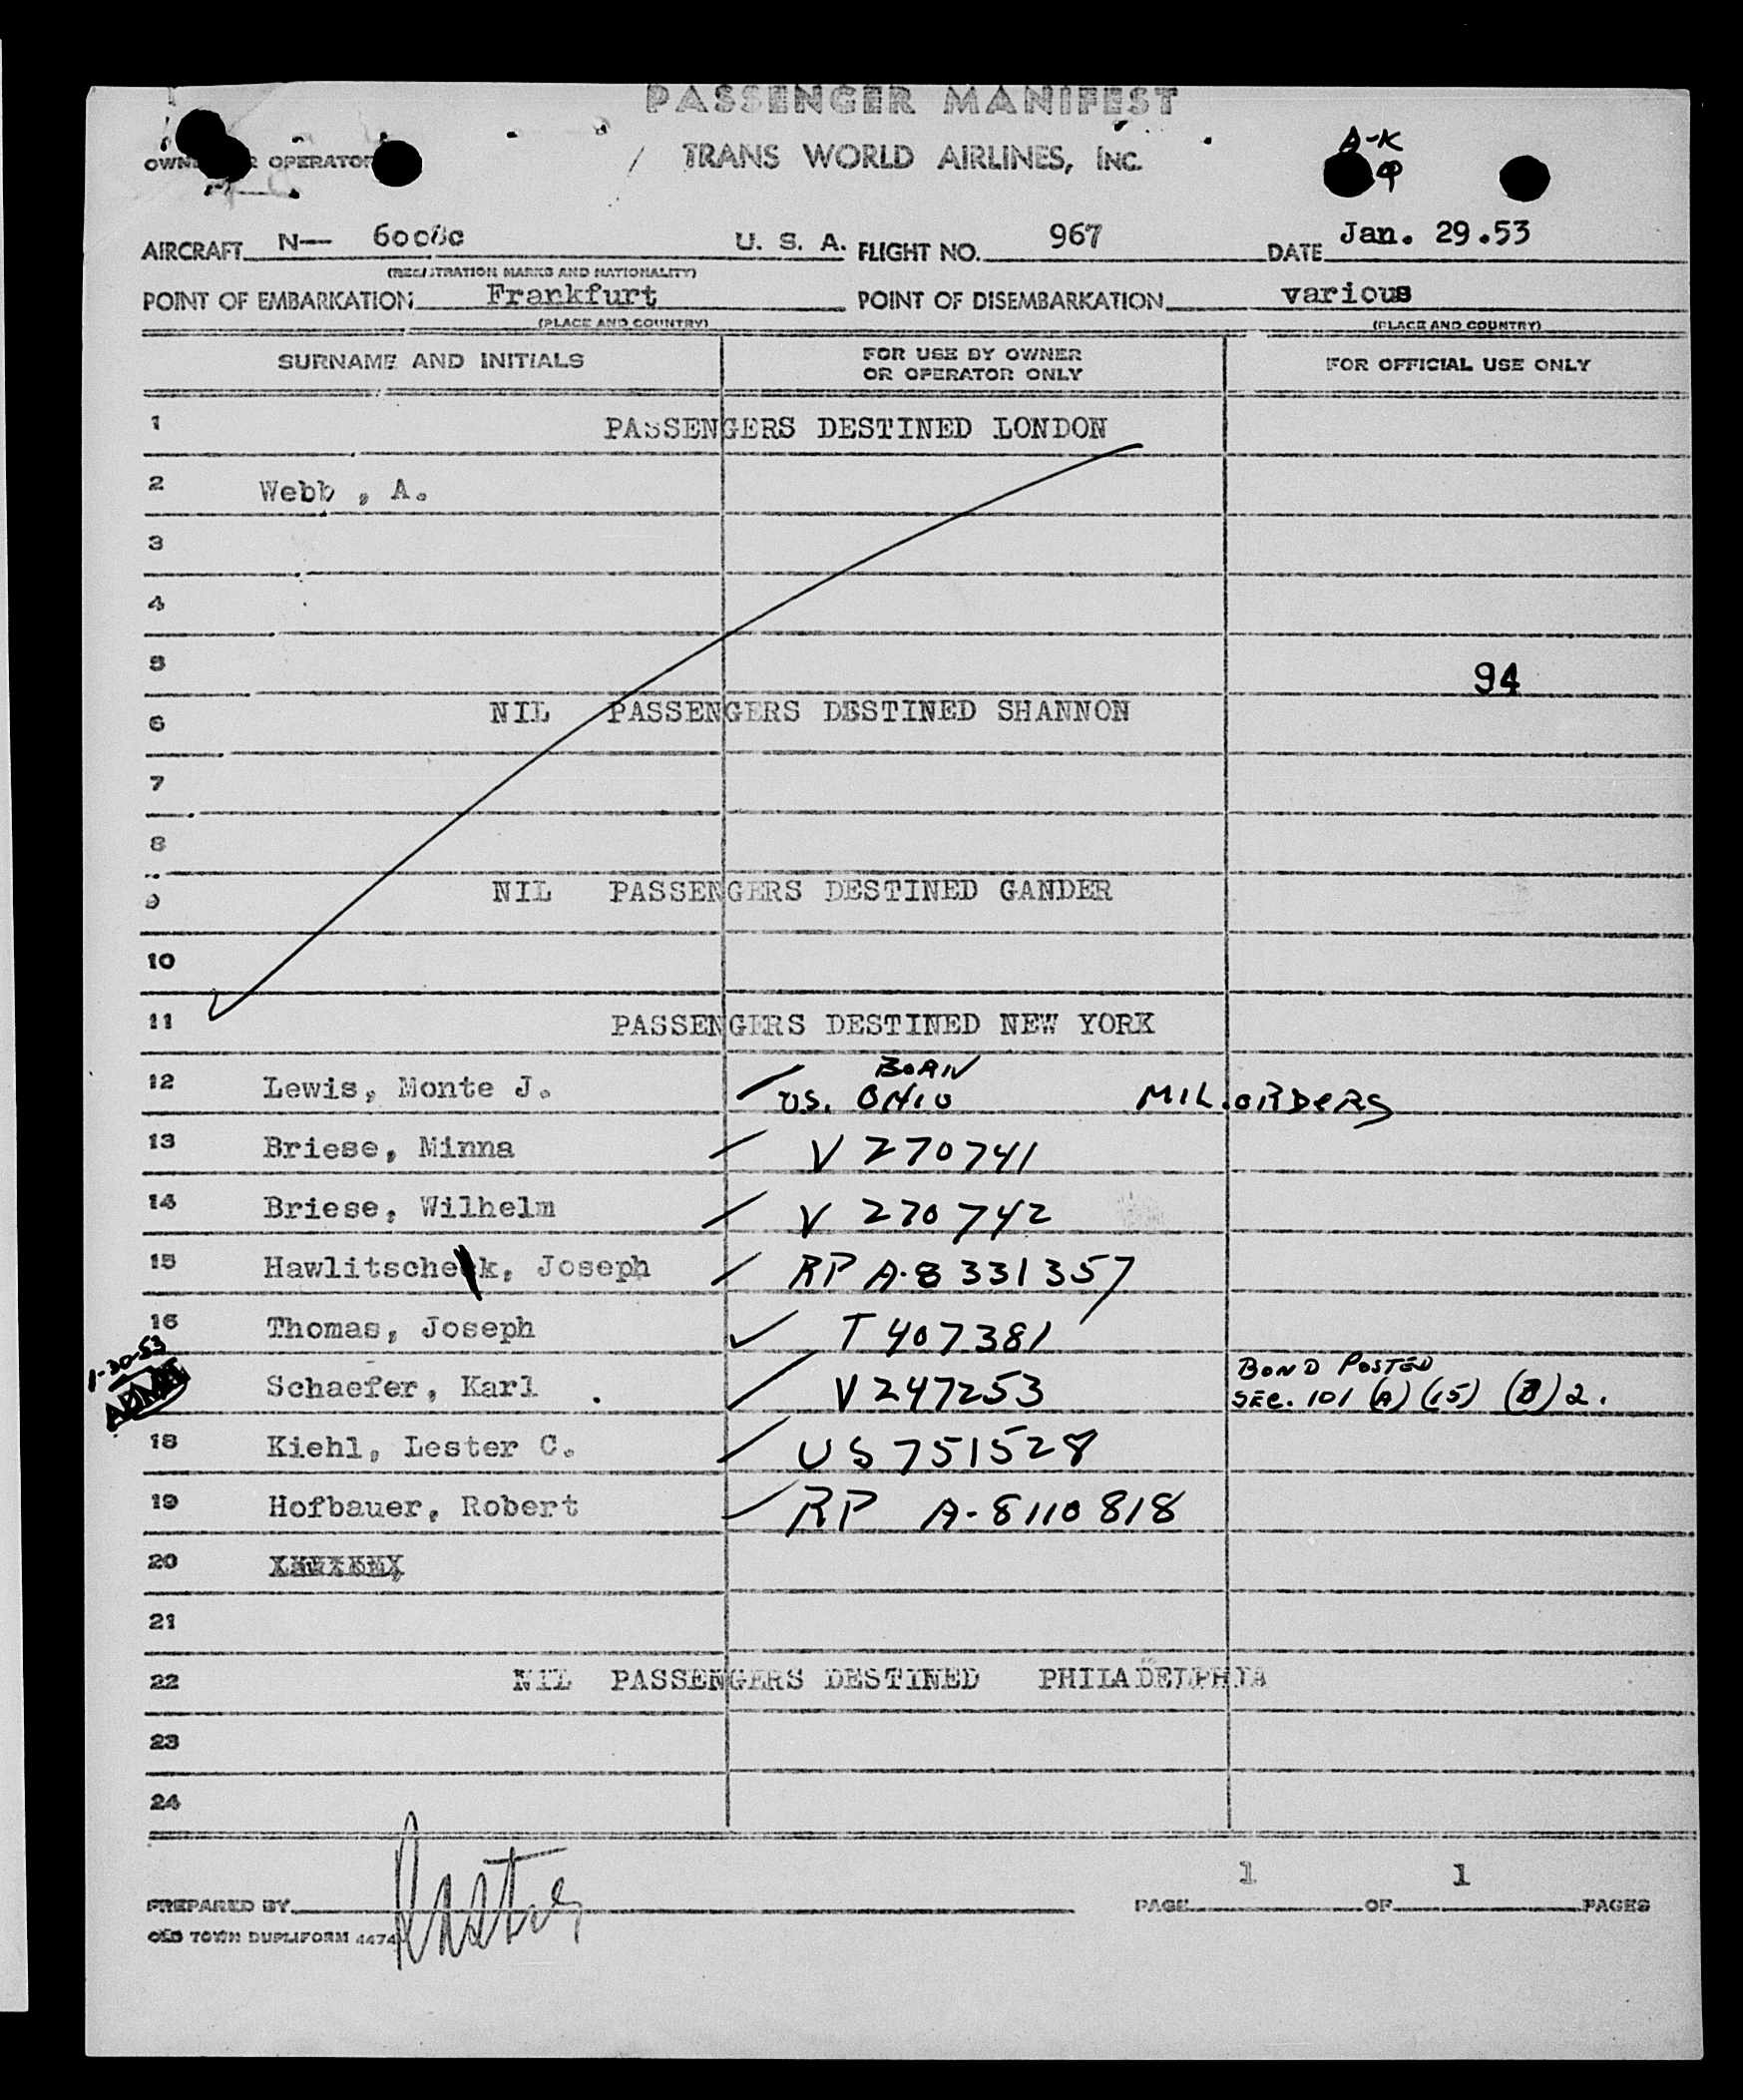 PASSENGER MANIFEST
OWNER OR OPERATOR TRANS WORLD AIRLINES, INC.
A-K
AIRCRAFT N— U. S. A. FLIGHT NO. 967 DATE Jan. 29.53
(REGISTRATION MARKS AND NATIONALITY)
POINT OF EMBARKATION Frankfurt POINT OF DISEMBARKATION various
(PLACE AND COUNTRY) (PLACE AND COUNTRY)
SURNAME AND INITIALS FOR USE BY OWNER OR OPERATOR ONLY FOR OFFICIAL USE ONLY
1 PASSENGERS DESTINED LONDON
2 Webb , A.
3
4
5 94
6 NIL PASSENGERS DESTINED SHANNON
7
8
9 NIL PASSENGERS DESTINED GANDER
10
11 PASSENGERS DESTINED NEW YORK
12 Lewis, Monte J. BORN US. OHIO MIL. ORDERS
13 Briese, Minna V 270741
14 Briese, Wilhelm V 270742
15 Hawlitschek, Joseph RP A-8 331357
16 Thomas, Joseph T 407381
1-30-53 ADMIT Schaefer, Karl . V 247253 BOND POSTED SEC. 101 (A) (15) (B) 2.
18 Kiehl, Lester C. US 751528
19 Hofbauer, Robert RP A-8110818
20
21
22 NIL PASSENGERS DESTINED PHILADELPHIA
23
24
PREPARED BY PAGE 1 OF 1 PAGES
OLD TOWN DUPLIFORM 4474